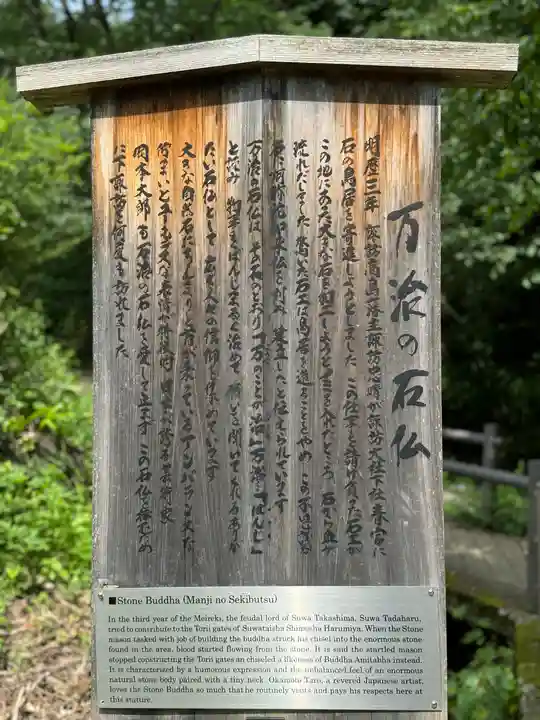 万治の石仏
明歴三年 諏訪高島藩主諏訪忠晴が諏訪大社下社春宮に
石の鳥居を寄進しようとしました この仕事を請け負った石工が
この地にあった大きな石を加工しようとノミを入れたところ 石から血が
流れだしてきた 驚いた石工は鳥居を造ることをやめ この不思議な
石に阿弥陀如来仏を刻み 建立したと伝えられています
万治の石仏は その名のとおり「万のことが治」「万治」「ばんじ」
と読み 物事をばんじまるく治めて 願いを聞いてくれるありが
たい石仏として 人々の信仰を集めています
大きな自然石にちんまりと首が乗っているアンバランスな
岡本太郎 万治の石仏を愛して止まず この石仏を
に下諏訪を何度も訪れました
■Stone Buddha (Manji no Sekibutsu)
In the third year of the Meireki, the feudal lord of Suwa Takashima, Suwa Tadaharu,
tried to contribute to the Torii gates of Suwataisha Shimosha Harumiya. When the Stone
mason tasked with job of building the buddha struck his chisel into the enormous stone
found in the area, blood started flowing from the stone. It is said the startled mason
stopped constructing the Torii gates an chiseled a likeness of Buddha Amitabha instead.
It is characterized by a humorous expression and the unbalanced feel of an enormous
natural stone body paired with a tiny neck. Okamoto Taro, a revered Japanese artist,
loves the Stone Buddha so much that he routinely visits and pays his respects here at
this stature.